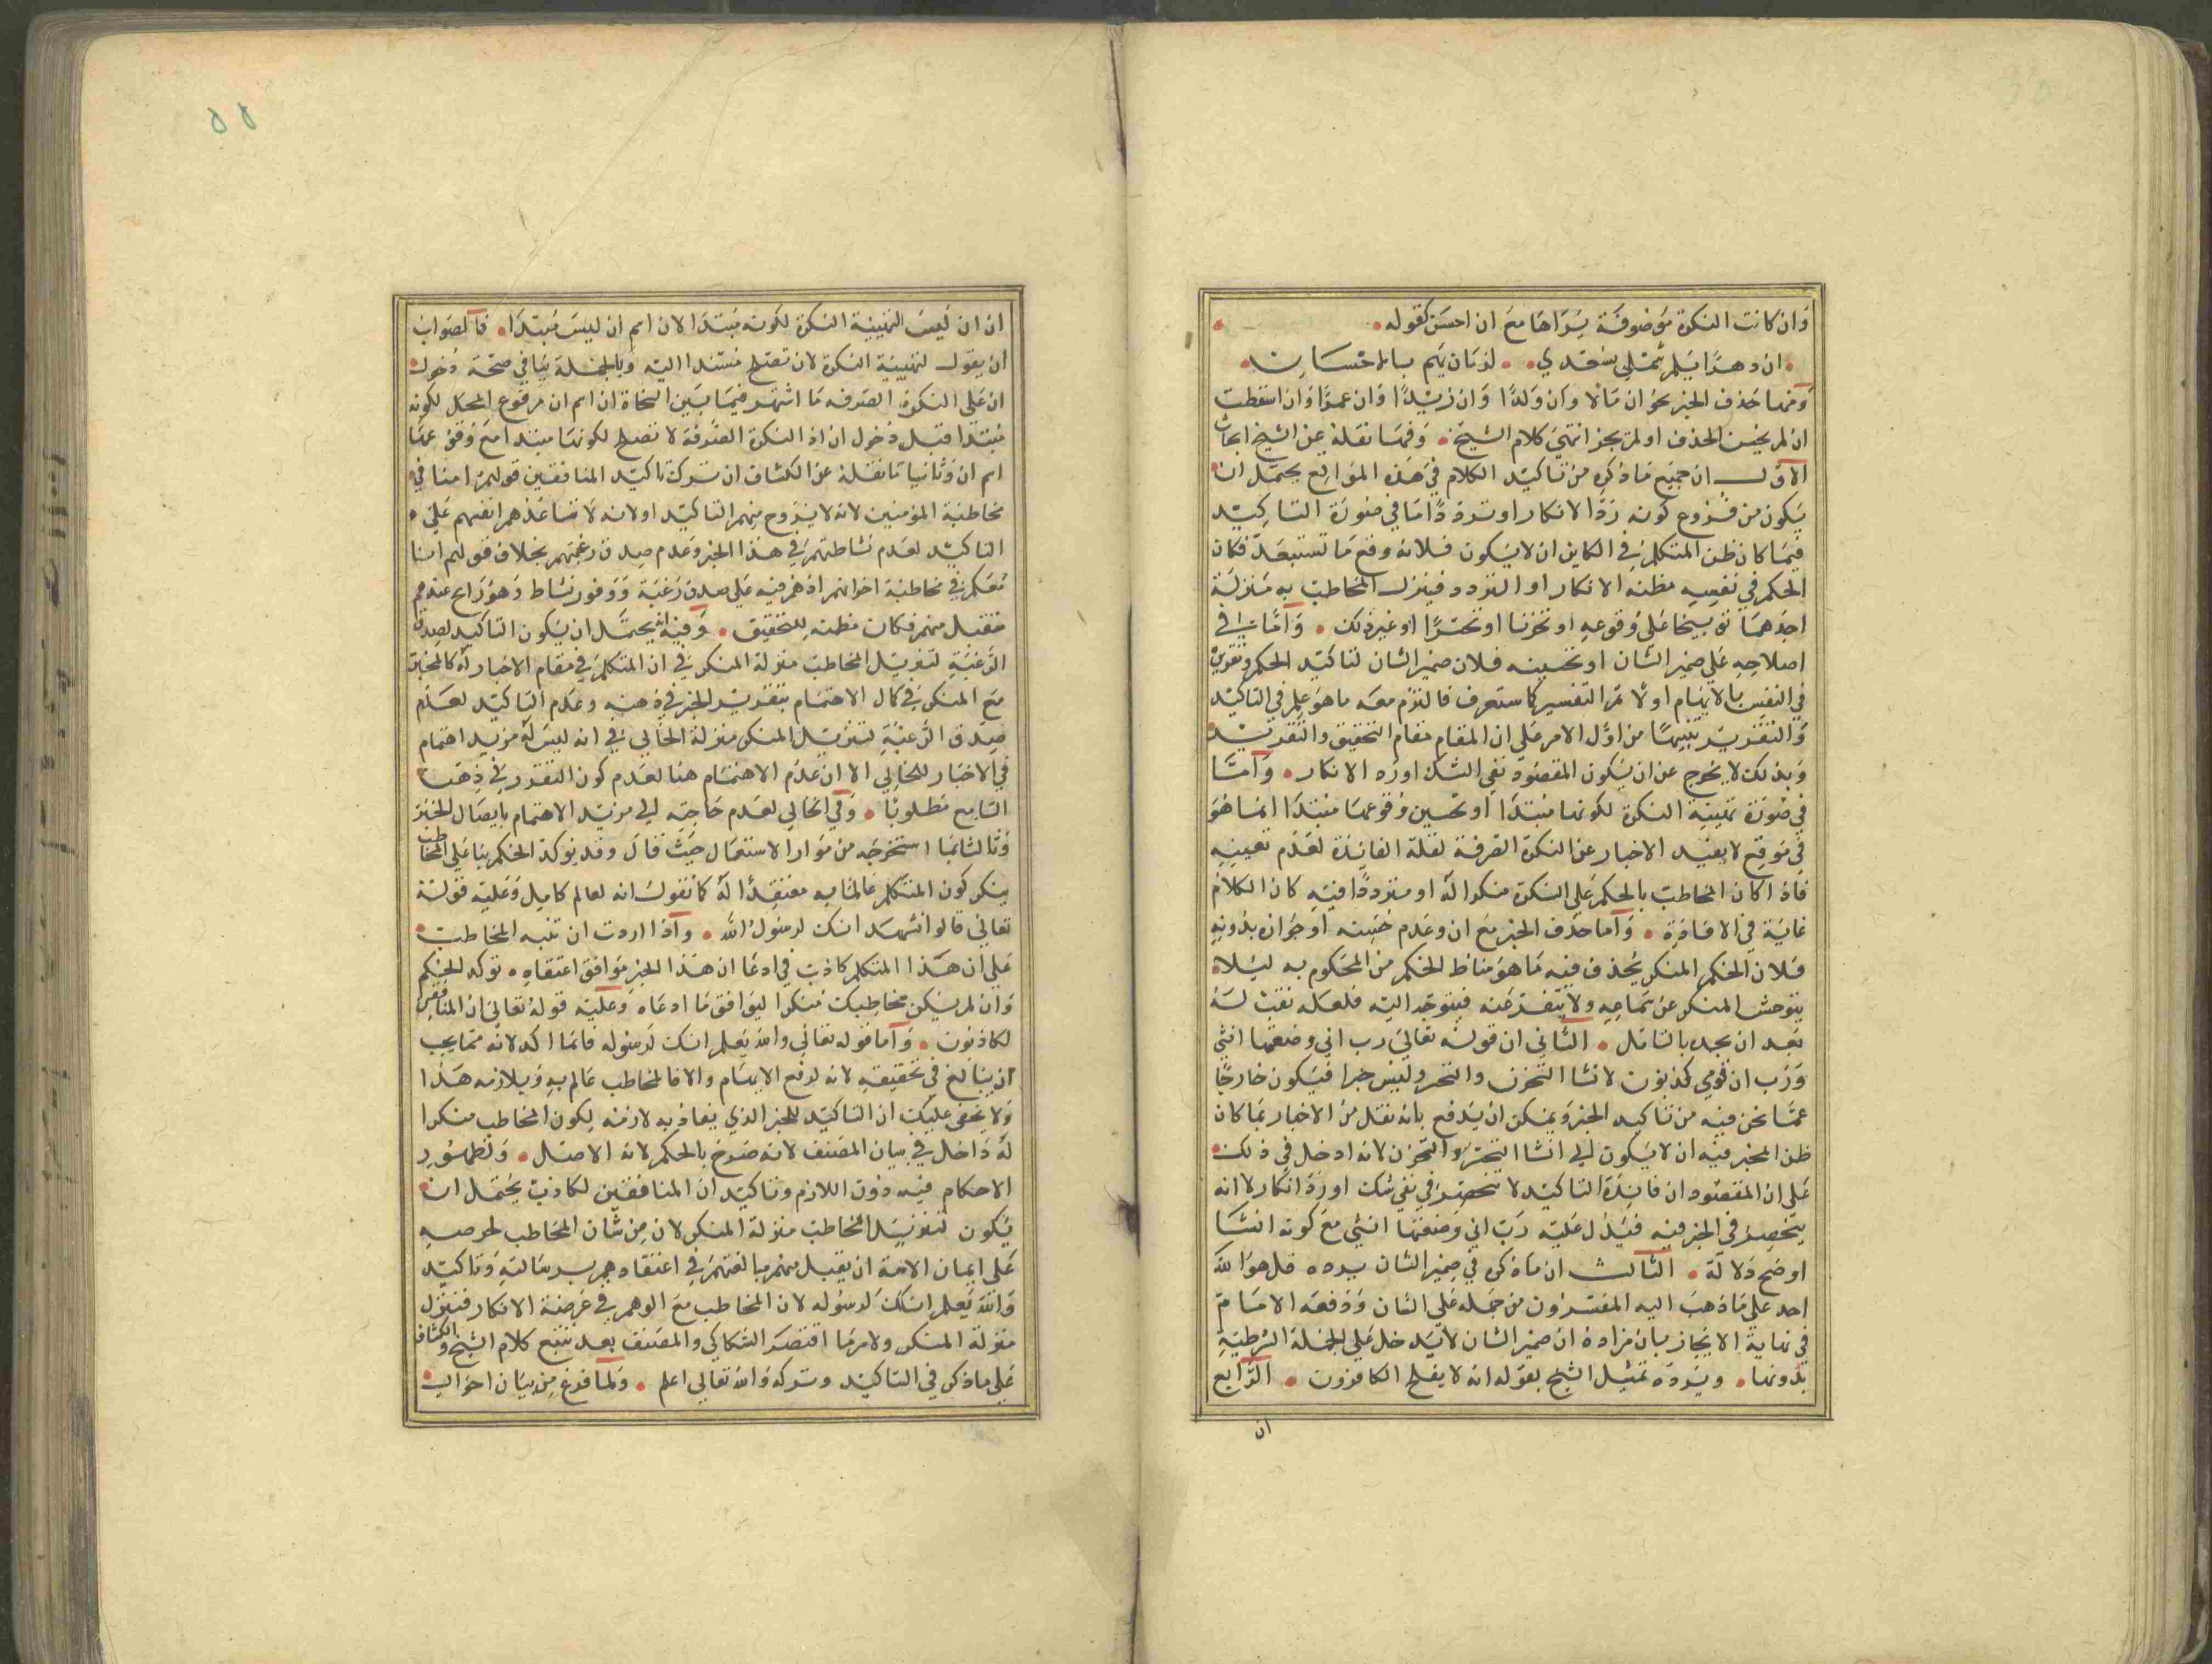 وان كانت النكرة موصوفة يراها مع ان احسن كقوله
ان دهرا يلم شملي بسعدي لزمان يهم بالاحسان
ومنها حذف الخبر نحو ان مالا وان ولدا وان زيدا وان عمرا وان اسقطت
ان لم يحسن الحذف او لم يجز انتهى كلام الشيخ وفيما نقله عن الشيخ ابحاث
الاول ان جميع ما ذكره من تاكيد الكلام في هذه المواقع يحتمل ان
يكون من فروع كونه ردا لانكار او تردد اما في صورة التاكيد
فيما كان ظن المتكلم في الكاين ان لا يكون فلانه وقع ما تستبعد فكان
الحكم في نفسه مظنه الانكار او التردد فينزل المخاطب به منزلة
احدهما توبيخا على وقوعه او تحزنا او تحسرا او غير ذلك واما في
اصلاحه على ضمير الشان او تحسينه فلان ضمير الشان لتاكيد الحكم وتقويته
في النفس بالابهام اولا ثم التفسير كما ستعرف فالتزم معه ما هو علم في التاكيد
والتقرير تنبيها من اول الامر على ان المقام مقام التحقيق والتقرير
وبذلك لا يخرج عن ان يكون المقصود نفي الشك او رد الانكار واما
في صورة تهيية النكرة لكونها مبتدا او تحسين وقوعها مبتدا انما هو
في موقع لا يفيد الاخبار عن النكرة الصرفة لقلة الفائدة لعدم تعيينه
فاذا كان المخاطب بالحكم على النكرة منكرا له او مترددا فيه كان الكلام
غاية في الافادة واما حذف الخبر مع ان وعدم حسنه او جوازه بدونه
فلان الحكم المنكر يحذف فيه ما هو مناط الحكم من المحكوم به ليلا
يتوحش المنكر عن سماعه ولا يتنفر عنه فيتوجه اليه فلعله نقبت له
بعد ان يجده بالتامل الثاني ان قوله تعالى رب اني وضعتها انثى
ورب ان قومي كذبون لانشا التحزن والتحسر وليس خبرا فيكون خارجا
عما نحن فيه من تاكيد الخبر ويمكن ان يدفع بانه نقل من الاخبار بما كان
ظن المخبر فيه ان لا يكون الى انشا التحسر والتحزن لانه ادخل في ذلك
على ان المقصود ان فائدة التاكيد لا تنحصر في نفي شك او رد انكار لا انه
ينحصر في الخبر فيه فيدل عليه رب اني وضعتها انثى مع كونه انشا
اوضح دلالة الثالث ان ما ذكره في ضمير الشان يرده قل هو الله
احد على ما ذهب اليه المفسرون من حمله على الشان ودفعه الامام
في نهاية الايجاز بان مراده ان ضمير الشان لا يدخل على الجملة الشرطية
بدونها ويرده تمثيل الشيخ بقوله انه لا يفلح الكافرون الرابع
ان
٥٥
ان ان ليس لتهيية النكرة لكونه مبتدا لان اسم ان ليس مبتدا فالصواب
ان يقول لتهيية النكرة لان تصلح مسندا اليه وبالجملة ينافي صحة دخول
ان على النكرة الصرفه ما اشتهر فيما بين النحاة ان اسم ان مرفوع المحل لكونه
مبتدا قبل دخول ان اذ النكرة الصرفة لا تصلح لكونها مبتدا مع وقوعها
اسم ان وثانيا ما نقله عن الكشاف ان ترك تاكيد المنافقين قولهم امنا في
مخاطبة المؤمنين لانه لا يروج منهم التاكيد او لانه لا تساعدهم انفسهم على
التاكيد لعدم نشاطهم في هذا الخبر وعدم صدق رغبتهم بخلاف قولهم انا
معكم في مخاطبة اخوانهم اذ هم فيه على صدق رغبة ووفور نشاط وهو رايج عندهم
متقبل منهم فكان مظنه للتحقيق وفيه انه يحتمل ان يكون التاكيد لصدق
الرغبة لتنزيل المخاطب منزلة المنكر في ان المتكلم في مقام الاخبار له كالمخبر
مع المنكر في كمال الاهتمام بتقرير الخبر في ذهنه وعدم التاكيد لعدم
صدق الرغبة لتنزيل المنكر منزلة الخالي في انه ليس له مزيد اهتمام
في الاخبار للخالي الا ان عدم الاهتمام هنا لعدم كون التقرر في ذهن
السامع مطلوبا وفي الخالي لعدم حاجته الى مزيد الاهتمام بايصال الخبر
وثالثا ما استخرجه من موارد الاستعمال حيث قال وقد يؤكد الحكم بنا على ان المخاطب
ينكر كون المتكلم عالما به معتقدا له كما تقول انه لعالم كامل وعليه قوله
تعالى قالوا نشهد انك لرسول الله واذا اردت ان تنبه المخاطب
على ان هذا المتكلم كاذب في ادعا ان هذا الخبر موافق اعتقاده توكد الحكم
وان لم يكن مخاطبك منكرا ليوافق ما ادعاه وعليه قوله تعالى ان المنافقين
لكاذبون واما قوله تعالى والله يعلم انك لرسوله فانما اكد لانه مما يجب
ان يبالغ في تحقيقه لانه لدفع الابهام والا فالمخاطب عالم به وبلازمه هذا
ولا يخفى عليك ان التاكيد للخبر الذي يفاد به لازمه لكون المخاطب منكرا
له داخل في بيان المصنف لانه صرح بالحكم لانه الاصل ولظهور
الاحكام فيه دون اللازم وتاكيد ان المنافقين لكاذب يحتمل ان
يكون لتنزيل المخاطب منزلة المنكر لان من شان المخاطب لحرصه
على ايمان الامة ان يقبل منهم مبالغتهم في اعتقادهم برسالته وتاكيد
والله يعلم انك لرسوله لان المخاطب مع الوهم في عرضة الانكار فنزل
منزلة المنكر ولامر ما اقتصر السكاكي والمصنف بعد تتبع كلام الشيخ والكشاف
على ما ذكر في التاكيد وتركه والله تعالى اعلم ولما فرغ من بيان احوال